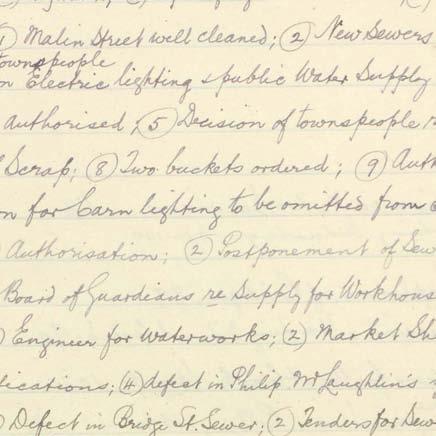 ① Malin Street well cleaned; ② New Sewers
townspeople
n Electric lighting & public Water Supply
authorised; ⑤ Decision of townspeople r
Scrap; ⑧ Two buckets ordered; ⑨ Auth
on for Carn lighting to be omitted from
Authorisation; ② Postponement of Sew
Board of Guardians re Supply for Workhous
Engineer for Waterworks; ② Market Sh
lications; ④ defect in Philip McLaughlin's
Defect in Bridge St. Sewer; ② Tenders for Sew